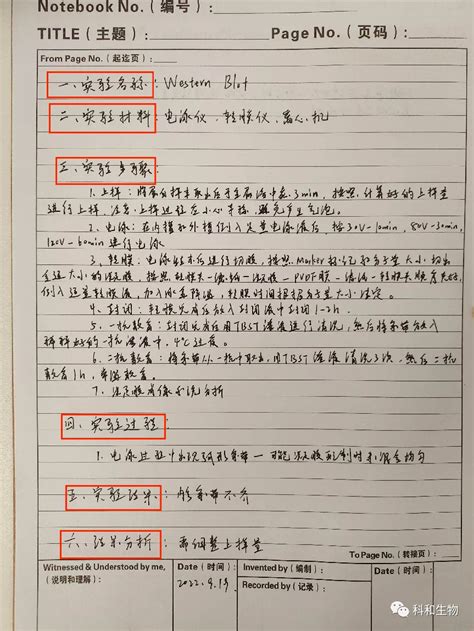 Notebook No.（编号）:
TITLE（主题）:
Page No.（页码）:
From Page No.（起迄页）:
一、实验名称: Western Blot
二、实验材料: 电泳仪, 转膜仪, 离心机
三、实验步骤:
1. 上样: 将蛋白样本取出后于金属浴中煮3min, 按照计算好的上样量
进行上样, 注意上样过程应小心平稳, 避免产生气泡。
2. 电泳: 在内槽和外槽倒入足量电泳液后, 按30V-10min, 80V-30min,
120V-60min进行电泳
3. 转膜: 电泳结束后进行切胶, 按照Marker标记和分子量大小切出
合适大小的凝胶, 按照 转膜夹-滤纸-凝胶-PVDF膜-滤纸-转膜夹顺序夹好,
倒入适量转膜液, 加入冰袋降温, 转膜时间根据分子量大小决定。
4. 封闭: 转膜完后放入封闭液中封闭1-2h.
5. 一抗孵育: 封闭完后用TBST溶液进行清洗, 然后将条带放入
稀释好的一抗溶液中, 4℃过夜.
6. 二抗孵育: 将条带从一抗中取出, 用TBST溶液清洗3次, 然后二抗
孵育1h, 室温孵育.
7. 凝胶成像系统分析
四、实验过程:
1. 电泳过程中出现弧形条带 — 可能凝胶配制时未混合均匀
五、实验结果: 条带不齐
六、结果分析: 需调整上样量
To Page No.（转接页）:
Witnessed & Understood by me,
（说明和理解）
Date（时间）
2022.9.19
Invented by（编制）:
Recorded by（记录）:
Date（时间）:
科和生物